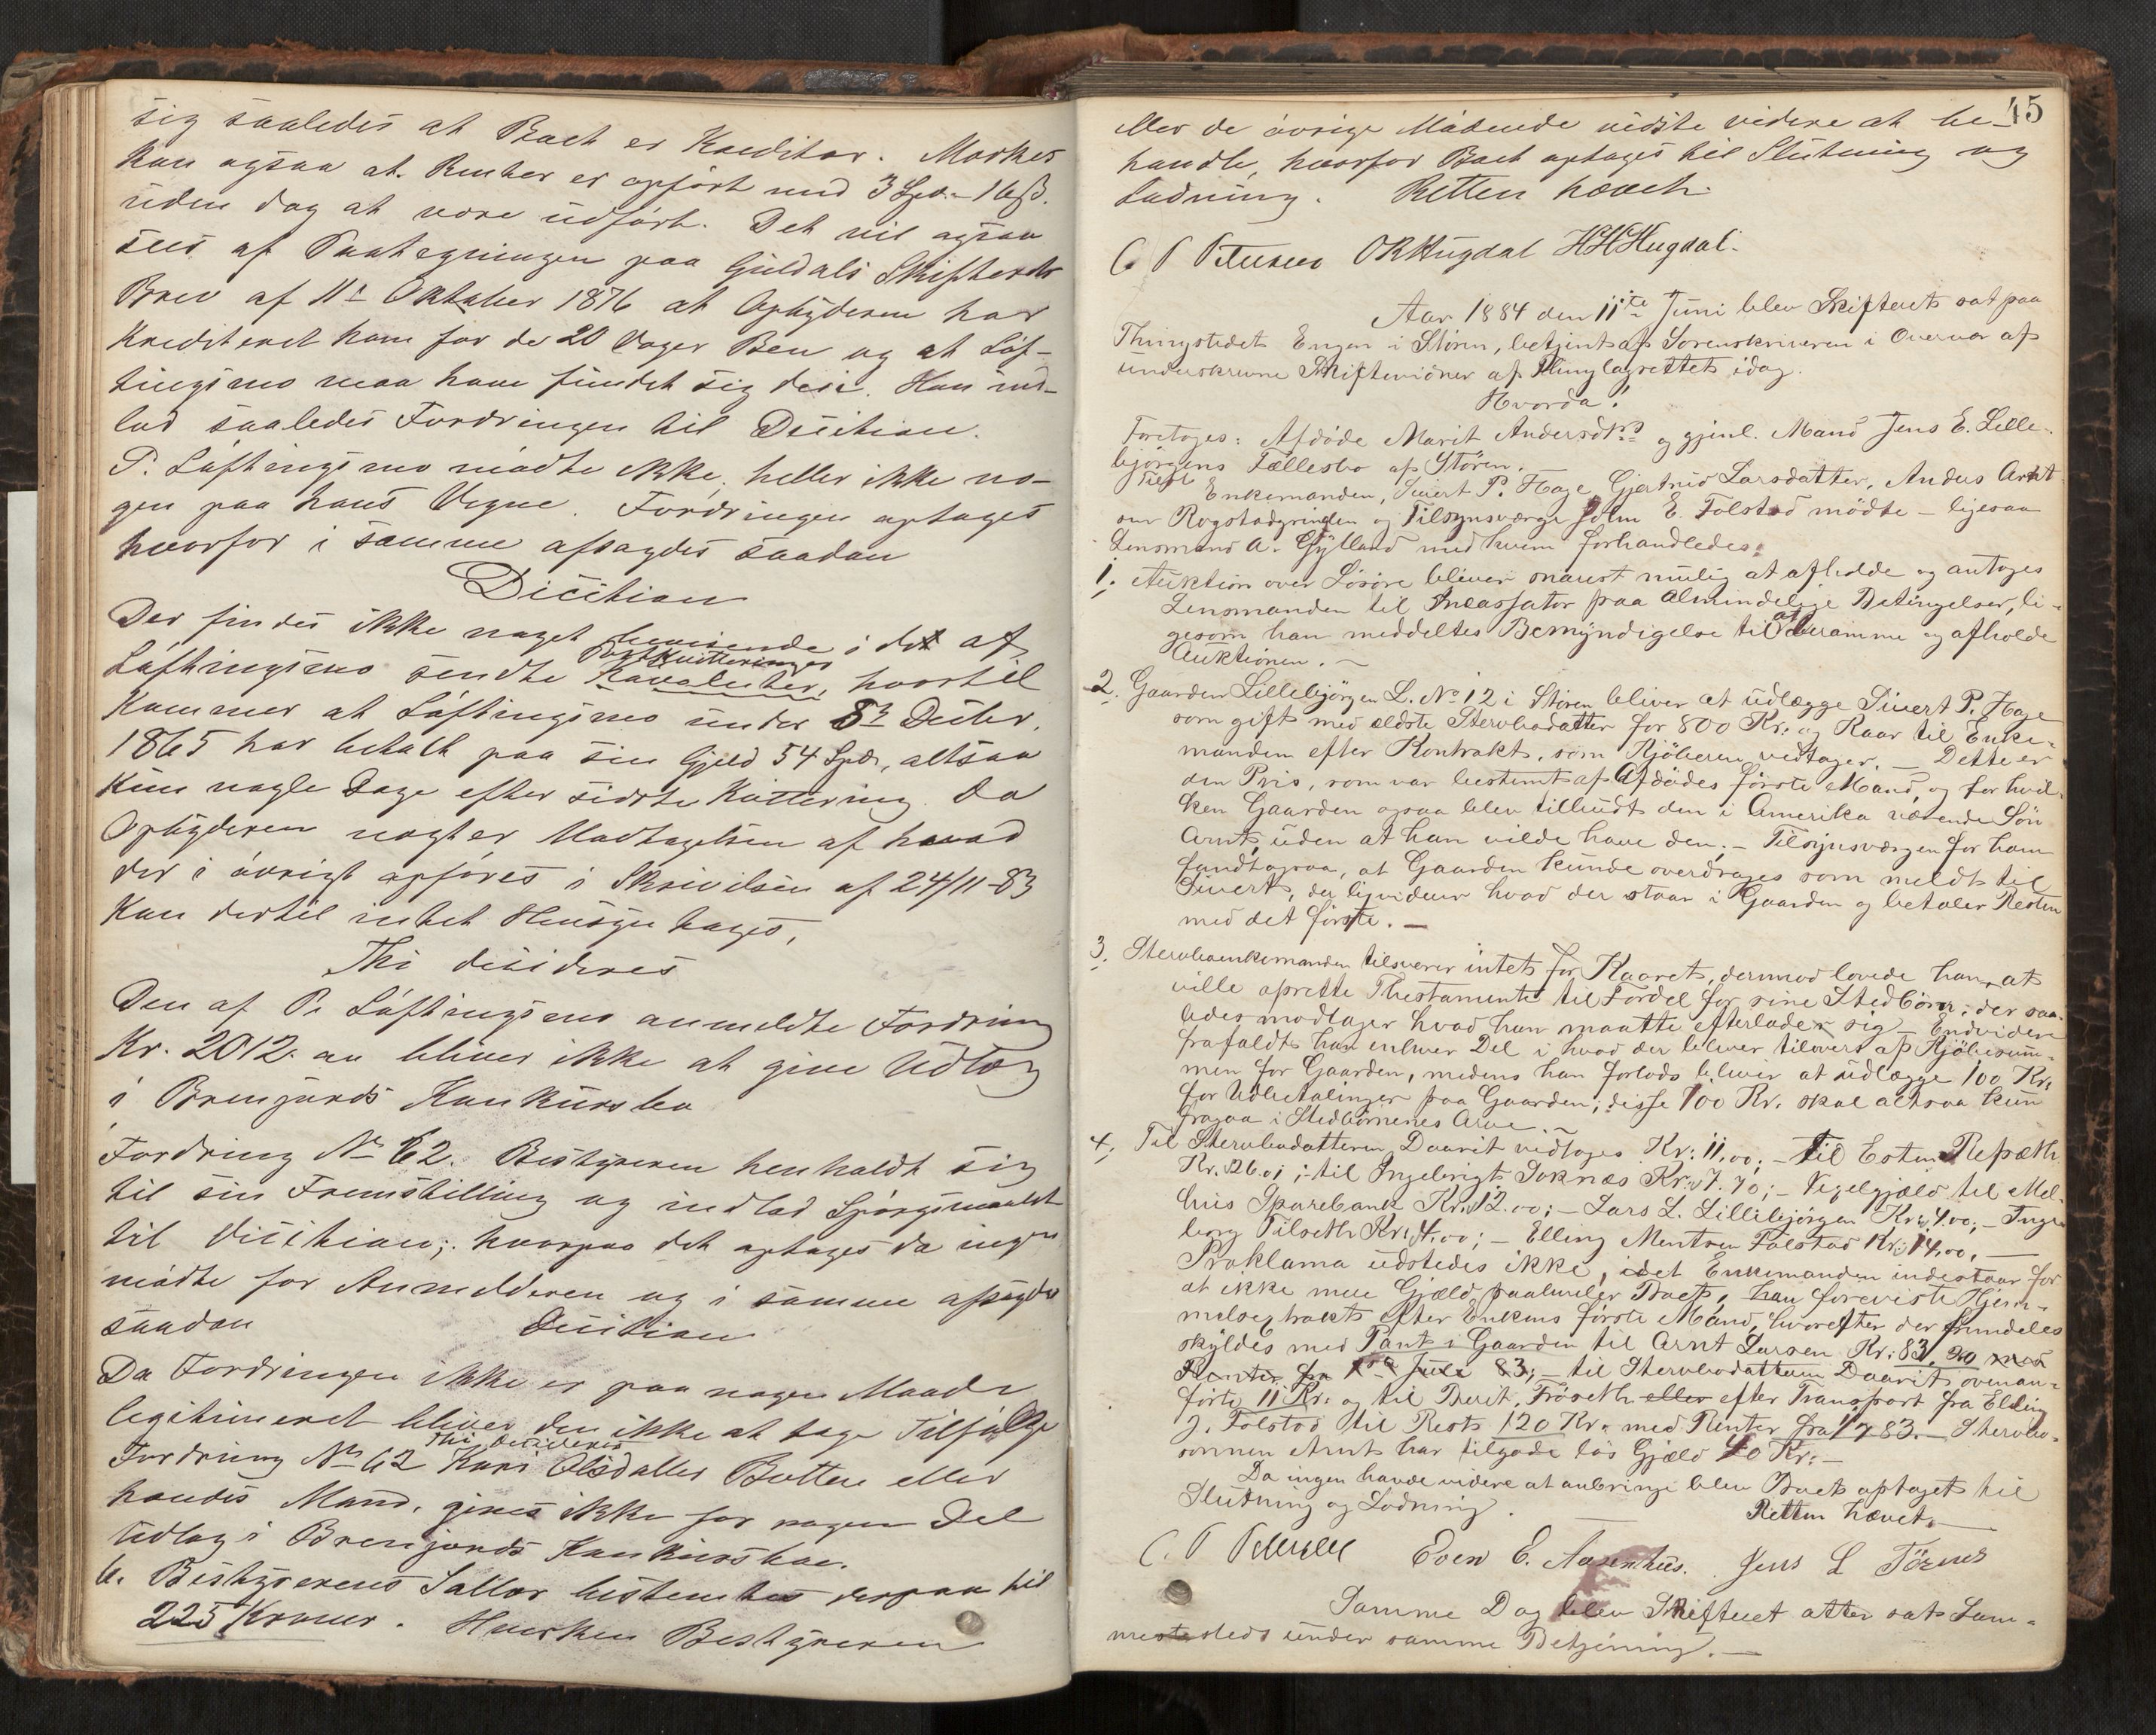 sig saaledes at Boet er Kreditor. Mærkes
kan ogsaa at Renter er opført med 3 Spd. - 16 ß.
uden dog at være udført. Det vil ogsaa
sees af Paategningen paa Guldals Skifterets
Brev af 11te Oktober 1876 at Opbyderen har
krediteret ham for de 20 Voger Ben og at Løf-
tingsmo maa have fundet sig deri. Han ind-
lod saaledes Fordringen til Decition.
P. Løftingsmo mødte ikke, heller ikke no-
gen paa hans Vegne. Fordringen optages
hvorfor i samme afsagdes saadan
Decition
Der findes ikke noget bevisende i det af
Løftingsmo sendte Postkvitteringer, hvortil
kommer at Løftingsmo under 8de Decbr.
1865 har betalt paa sin Gjeld 54 Spd, altsaa
kun nogle Dage efter sidste Kvittering. Da
Opbyderen nægter Modtagelsen af hvad
der i øvrigt opføres i Skrivelsen af 24/11-83
kan dertil intet Hensyn tages,
Thi decideres
Den af P. Løftingsmo anmeldte Fordring
Kr. 2012. bliver ikke at give Udlæg
i Brenjords Konkursbo
Fordring No 62. Bestyreren henholdt sig
til sin Fremstilling og indlod Spørgsmaalet
til Decition; hvorpaa det optages da ingen
mødte for Anmelderen og i samme afsagdes
saadan Decition
Da Fordringen ikke er paa nogen Maade
legitimeret bliver den ikke at tage Tilfølge
Thi decideres
Fordring No 62 Kari Olsdatter Botten eller
hendes Mand, gives ikke for nogen Del
Udlæg i Brenjords Konkursbo.
6. Bestyrerens Sallær bestemtes derpaa til
225 Kroner. Hverken Bestyreren
45
eller de øvrige Mødende vidste videre at be-
handle, hvorfor Boet optages til Slutning og
Lodning. Retten hævet.
C P Petersen OKHugdal HHHugdal.
Aar 1884 den 11te Juni blev Skifteret sat paa
Thingstedet Engen i Støren, betjent af Sorenskriveren i Overvær af
underskrevne Skiftevidner af Thinglagrettet idag.
Hvorda!
Foretoges: Afdøde Marit Andersdtrs og gjenl. Mand Jens E. Lille-
bjørgens Fællesbo af Støren.
Enkemanden, Sivert P. Hage, Gjertrud Larsdatter, Anders Arnt-
sen Rogstadgrinden og Tilsynsværge John E. Folstad mødte - ligesaa
Lensmand A. Gylland med hvem forhandledes:
1. Auktion over Løsøre bliver snarest mulig at afholde og antoges
Lensmanden til Incassator paa Almindelige Betingelser, li-
gesom han meddeltes Bemyndigelse til at beramme og afholde
Auktionen. -
2. Gaarden Lillebjørgen L. No 12 i Støren bliver at udlægge Sivert P. Hage
som gift med ældste Stervbodatter for 800 Kr. og Kaar til Enke-
manden efter Kontrakt, som Kjøberen vedtager. - Dette er
den Pris, som var bestemt af Afdødes første Mand, og for hvil-
ken Gaarden ogsaa blev tilbudt den i Amerika værende Søn
Arnt, uden at han vilde have den. - Tilsynsværgen for ham
fandt ogsaa, at Gaarden kunde overdrages som meldt til
Sivert, der liqviderer hvad der staar i Gaarden og betaler Resten
med det første. -
3. Stervboenkemanden tilsvarer intet for Kaaret, derimod lovede han, at
ville oprette Thestamente til Fordel for sine Stedbørn, der saa-
ledes modtager hvad han maatte efterlade sig - Endvidere
frafaldt han enhver Del i hvad der bliver tilovers af Kjøbesum-
men for Gaarden, medens han forlods bliver at udlægge 100 Kr.
for Udbetalinger paa Gaarden; disse 100 Kr. skal altsaa kun
fragaa i Stedbørnenes Arve. -
4. Til Stervbodatteren Daarit vedtoges Kr. 11,00; - til Esten Refseth
Kr. 26.01; - til Ingebrigt Soknæs Kr. 7.70; - Vexelgjæld til Mel-
hus Sparebank Kr. 12.00; - Lars L. Lillebjørgen Kr. 4.00; - Inge-
borg Tilseth Kr. 4.00; - Elling Mentsen Folstad Kr. 14.00. -
Proklama udstedes ikke, idet Enkemanden indestaar for
at ikke mere Gjæld paahviler Boet, han foreviste Hjem-
melsextrakt efter Enkens første Mand, hvorefter der fremdeles
skyldes med Pant i Gaarden til Arnt Larsen Kr. 83.20 med
Renter fra 1ste Juli 83; - til Stervbodatteren Daarit ovenan-
førte 11 Kr. og til Berit Frøseth eller efter Transport fra Elling
J. Folstad til Rest 120 Kr. med Renter fra 1/7 83. - Stervbo-
sønnen Arnt har tilgode løs Gjæld 40 Kr. -
Da ingen havde videre at anbringe blev Boet optaget til
Slutning og Lodning. Retten hævet. -
C. P Petersen Even E. Aasenhus. Jens L Tørnes
Samme Dag blev Skifteret atter sat Sam-
mesteds under samme Betjening. -